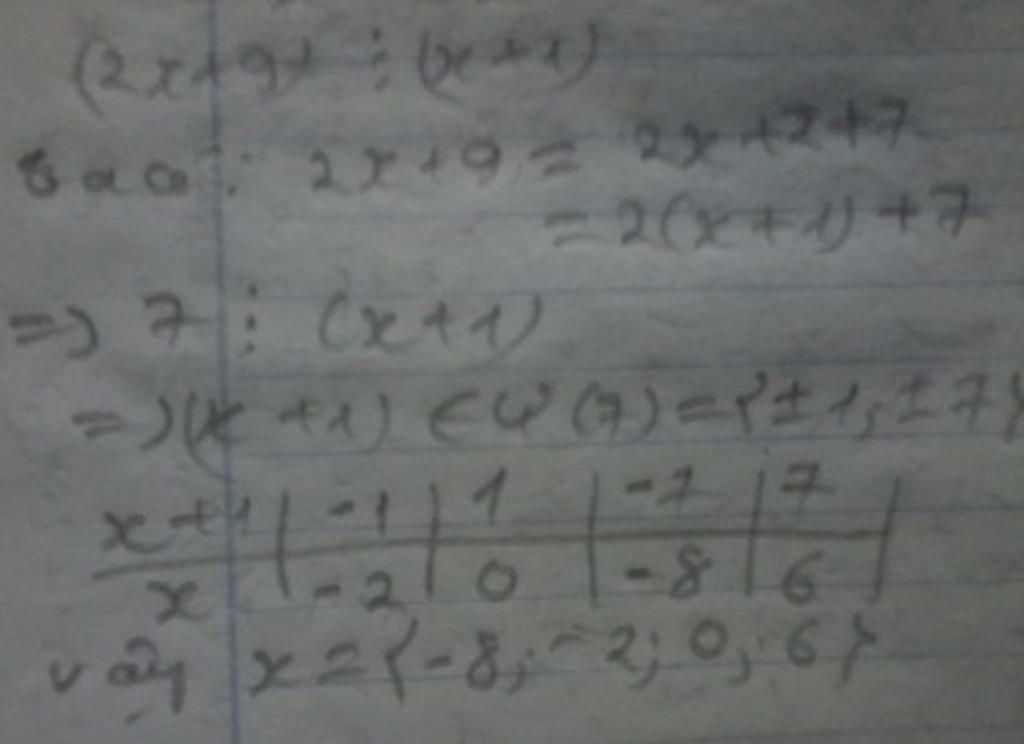 (2x+9) ⋮ (x+1)
ta có: 2x+9 = 2x+2+7
= 2(x+1)+7
=> 7 ⋮ (x+1)
=> (x+1) ∈ Ư(7) = {±1; ±7}
x+1 | -1 | 1 | -7 | 7 |
x | -2 | 0 | -8 | 6 |
vậy x = {-8; -2; 0; 6}